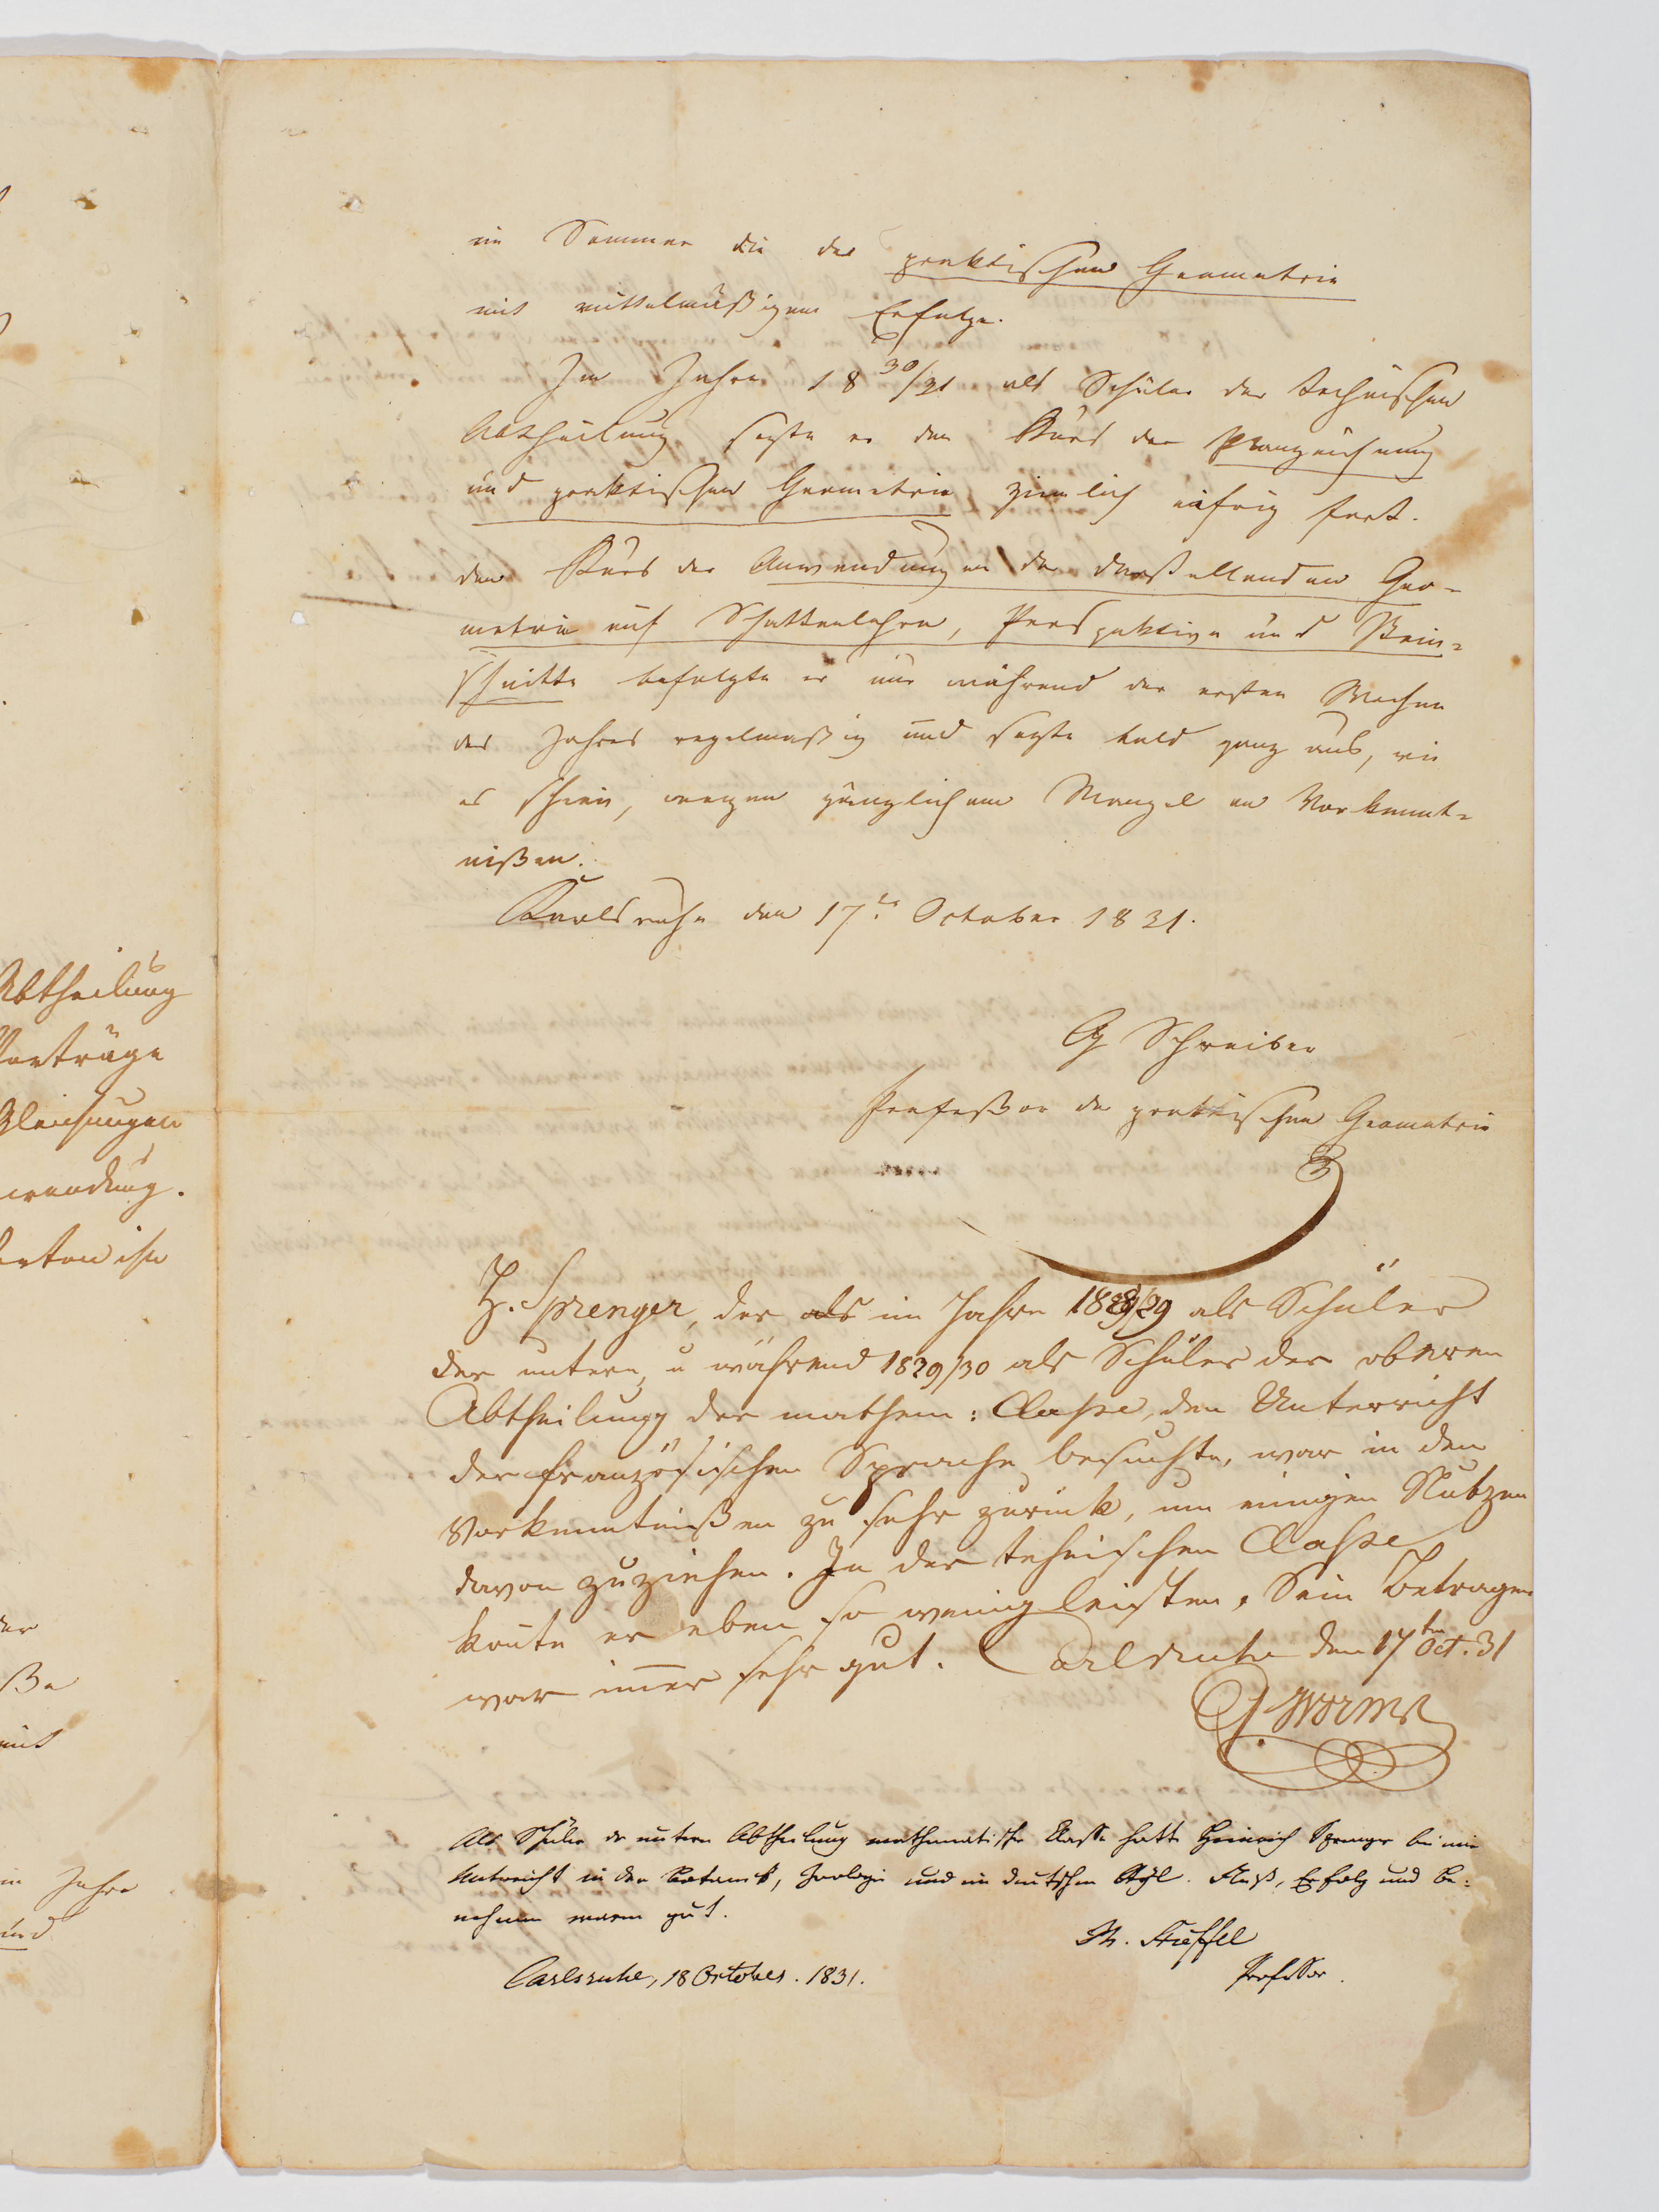 Abtheilung
Vorträge
Gleichungen
wendung.
ße
mit
im Jahre
und
im Sommer die der praktischen Geometrie
mit mittelmäßigem Erfolge.
Im Jahre 18 30/31 als Schüler der technischen
Abtheilung sezte er den Kurs der Planzeichnung
und praktischen Geometrie ziemlich eifrig fort.
den Kurs der Anwendungen der darstellenden Geo-
metrie auf Schattenlehre, Perspektive und Stein-
schnitte befolgte er nur während der ersten Wochen
des Jahres regelmäßig und sezte bald ganz aus, wie
es schien, wegen gänzlichem Mangel an Vorkennt-
nißen.
Karlsruhe den 17te October 1831.
G Schreiber
Profeßor der praktischen Geometrie
H. Sprenger, der als im Jahre 1828/29 als Schüler
der untern, u während 1829/30 als Schüler der oberen
Abtheilung der mathem: Classe, den Unterricht
der französischen Sprache besuchte, war in den
Vorkenntnißen zu sehr zurück, um einigen Nutzen
davon zuziehen. In der tehnischen Classe
konte er eben so wenig leisten. Sein Betragen
war im̄er sehr gut. Carlsruhe den 17ten Oct. 31
Worms
Als Schüler der untern Abtheilung mathematischer Classe hatte Heinrich Sprenger bei mir
Unterricht in der Botanik, Zoologie und im deutschen Styl. Fleiß, Erfolg und Be-
nehmen waren gut.
Carlsruhe, 18 October. 1831.
Professor.